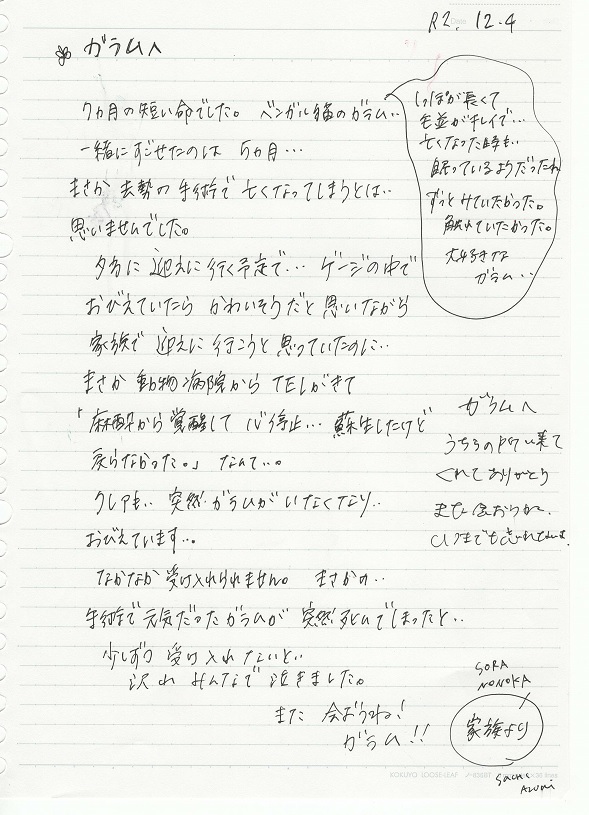 R2. 12.4
ガラムへ
7ヵ月の短い命でした。ベンガル猫のガラム…
一緒にすごせたのは 5ヵ月…
まさか 去勢の手術で亡くなってしまうとは…
思いませんでした。
夕方に迎えに行く予定で… ゲージの中で
おびえていたら かわいそうだと思いながら
家族で 迎えに行こうと思っていたのに…
まさか 動物病院から TELがきて
「麻酔から覚醒して 心停止… 蘇生したけど
戻らなかった。」 なんて…。
クレアも… 突然ガラムがいなくなり…
おびえています…。
なかなか 受け入れられません。 まさかの…
手術で元気だったガラムが 突然死んでしまったと…
少しずつ 受け入れないと…
沢山 みんなで 泣きました。
また 会おうね!
ガラム!!
しっぽが長くて
毛並がキレイで…
亡くなった時も…
眠っているようだったね
ずっとみていたかった。
触れていたかった。
大好きな
ガラム…
ガラムへ
うちの に来て
くれてありがとう
また会おうね。
いつまでも忘れないよ。
SORA
NONOKA
家族より
SACHI
AZUMI
KOKUYO LOOSE-LEAF